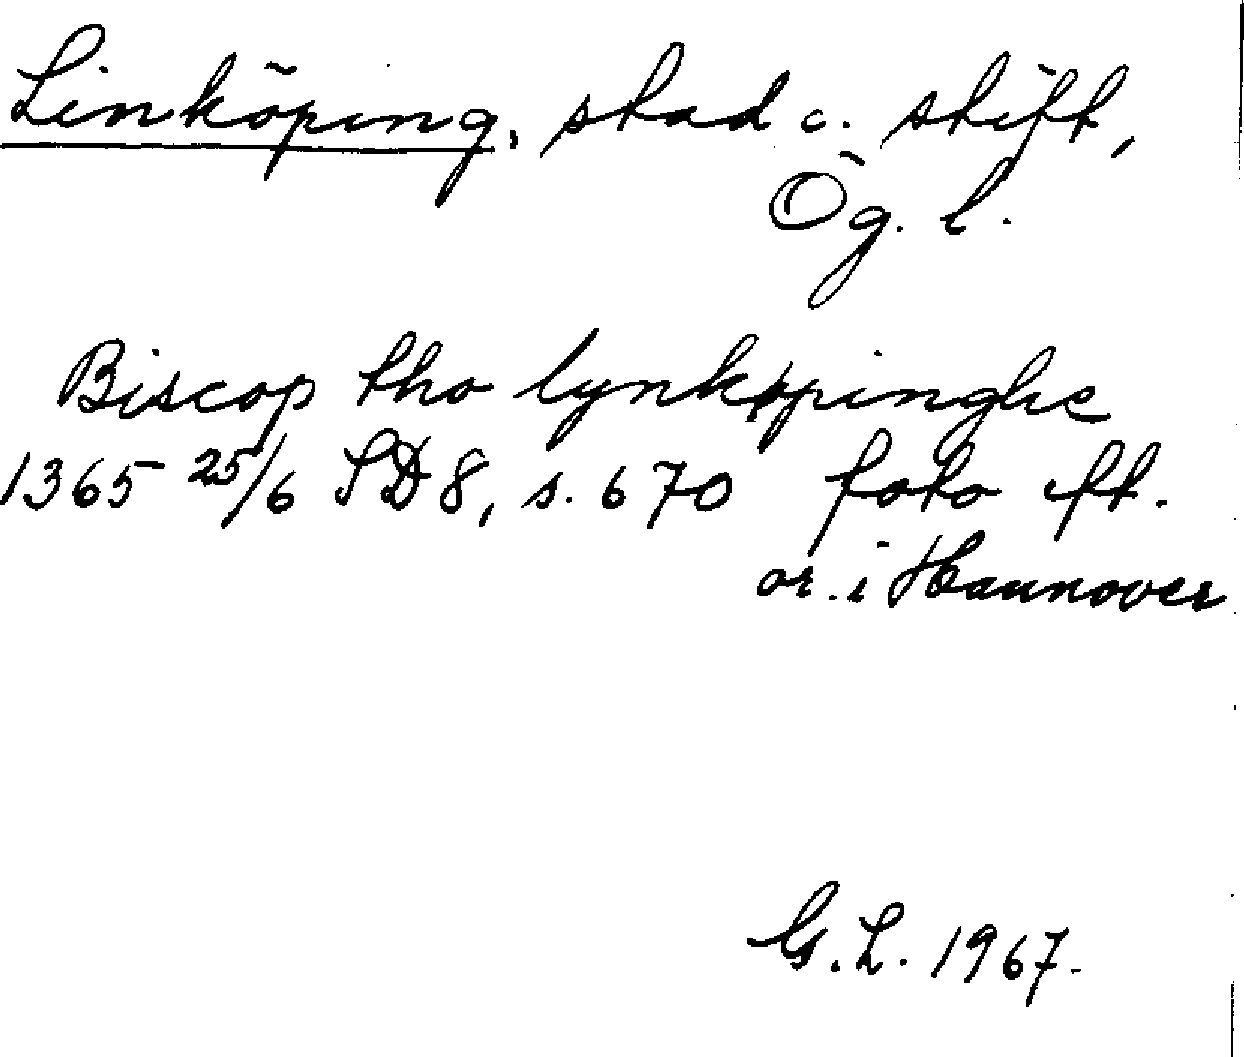 Linköping, stad o. stift,
Ög. l.
Biscop tho lynkøpinghe
1365 25/6 SD 8, s. 670 foto eft.
or. i Hannover
G.L. 1967.